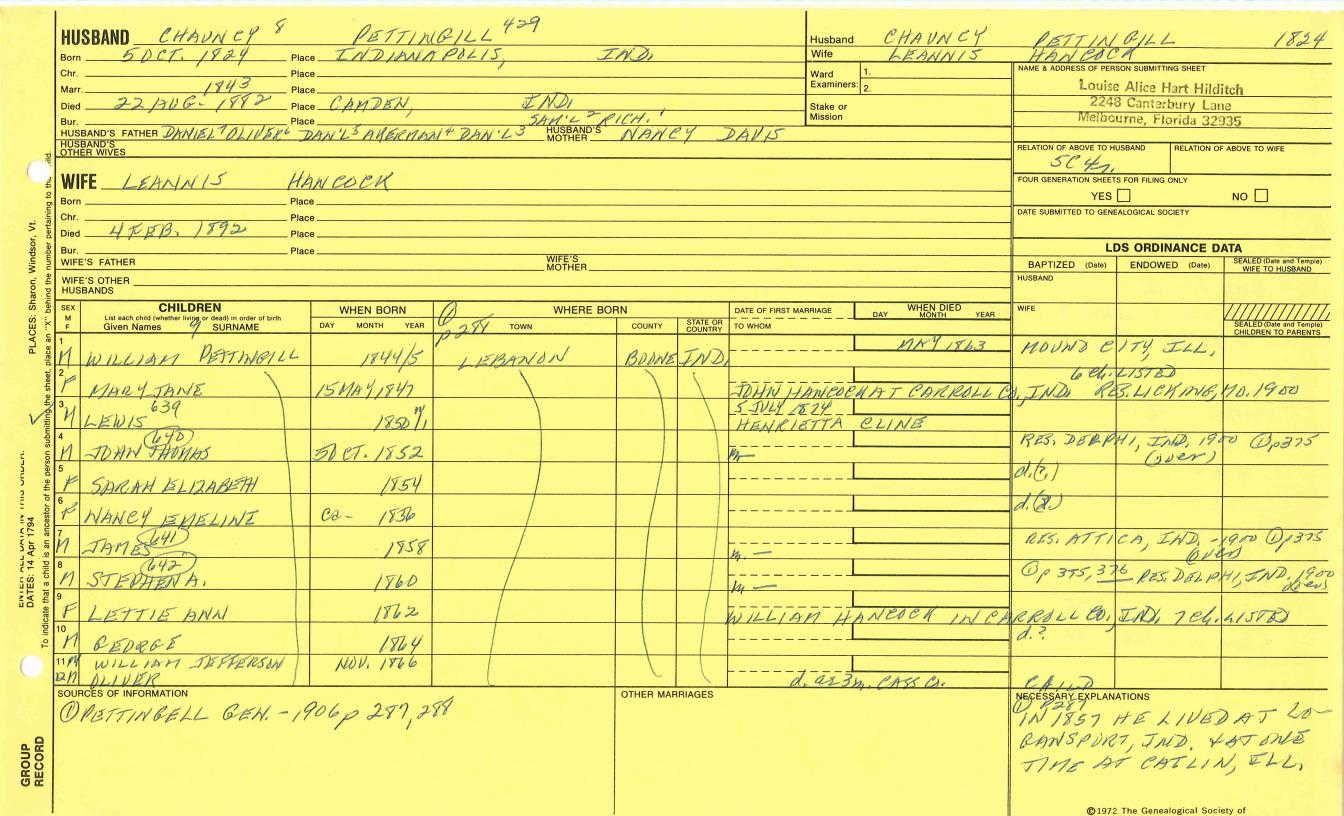 HUSBAND CHAUNCY 8 PETTINGILL 429
Born 5 OCT. 1824 Place INDIANAPOLIS, IND.
Chr. Place
Marr. 1843 Place
Died 22 AUG- 1882 Place CAMDEN, IND.
Bur. Place SAM'L 2 RICH. 1
HUSBAND'S FATHER DANIEL 7 OLIVER 6 DAN'L 5 AKERMAN 4 DAN'L 3 HUSBAND'S MOTHER NANCY DAVIS
HUSBAND'S OTHER WIVES
WIFE LEANNIS HANCOCK
Born Place
Chr. Place
Died 4 FEB. 1892 Place
Bur. Place
WIFE'S FATHER WIFE'S MOTHER
WIFE'S OTHER HUSBANDS
Husband CHAUNCY PETTINGILL 1824
Wife LEANNIS HANCOCK
Ward Examiners: 1. 2.
Stake or Mission
NAME & ADDRESS OF PERSON SUBMITTING SHEET
Louise Alice Hart Hilditch
2248 Canterbury Lane
Melbourne, Florida 32935
RELATION OF ABOVE TO HUSBAND RELATION OF ABOVE TO WIFE
5C 4r.
FOUR GENERATION SHEETS FOR FILING ONLY
YES NO
DATE SUBMITTED TO GENEALOGICAL SOCIETY
LDS ORDINANCE DATA
BAPTIZED (Date) ENDOWED (Date) SEALED (Date and Temple) WIFE TO HUSBAND
HUSBAND
WIFE
SEALED (Date and Temple) CHILDREN TO PARENTS
SEX M F CHILDREN WHEN BORN WHERE BORN DATE OF FIRST MARRIAGE WHEN DIED
List each child (whether living or dead) in order of birth
Given Names 9 SURNAME DAY MONTH YEAR ① p 288 TOWN COUNTY STATE OR COUNTRY TO WHOM DAY MONTH YEAR
1 M WILLIAM PETTINGILL 1844/5 LEBANON BOONE IND. MAY 1863 MOUND CITY, ILL.
6 Ch. LISTED
2 F MARY JANE 15 MAY 1847 JOHN HANCOCK AT CARROLL CO, IND. RES. LICKING, MO. 1900
3 M LEWIS 639 1850/1 5 JULY 1874 HENRIETTA CLINE
4 M JOHN THOMAS 640 5 OCT. 1852 m- RES. DELPHI, IND. 1900 ① p 375 (over)
5 F SARAH ELIZABETH 1854 d.(?)
6 F NANCY EMELINE Ca- 1856 d.(?)
7 M JAMES 641 1858 m. - RES. ATTICA, IND, -1900 ① p 375 (over)
8 M STEPHEN A. 642 1860 m - ① p 375, 376 RES. DELPHI, IND. 1900 over
9 F LETTIE ANN 1862 WILLIAM HANCOCK IN CARROLL CO, IND. 7 Ch. LISTED
10 M GEORGE 1864 d.?
11 M WILLIAM JEFFERSON NOV. 1866
12 M OLIVER d. as 3m. CASS CO. CHILD
SOURCES OF INFORMATION OTHER MARRIAGES NECESSARY EXPLANATIONS
① PETTINGELL GEN. - 1906 p 287, 288
① P287
IN 1857 HE LIVED AT LO-
GANSPORT, IND. & AT ONE
TIME AT CATLIN, ILL.
©1972 The Genealogical Society of
PLACES: Sharon, Windsor, Vt.
ENTER ALL DATA IN THIS ORDER:
DATES: 14 Apr 1794
To indicate that a child is an ancestor of the person submitting the sheet, place an "X" behind the number pertaining to that child.
GROUP RECORD